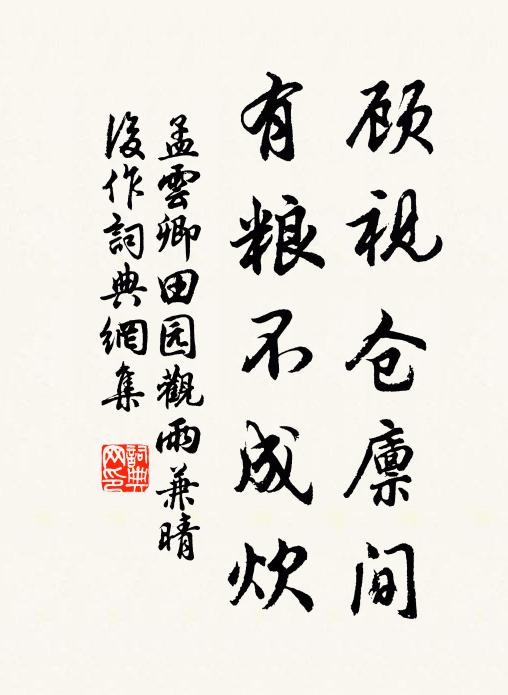 顾视仓廪间
有粮不成炊
孟雲卿田园觀雨兼晴
後作詞典網集
詞典
网印